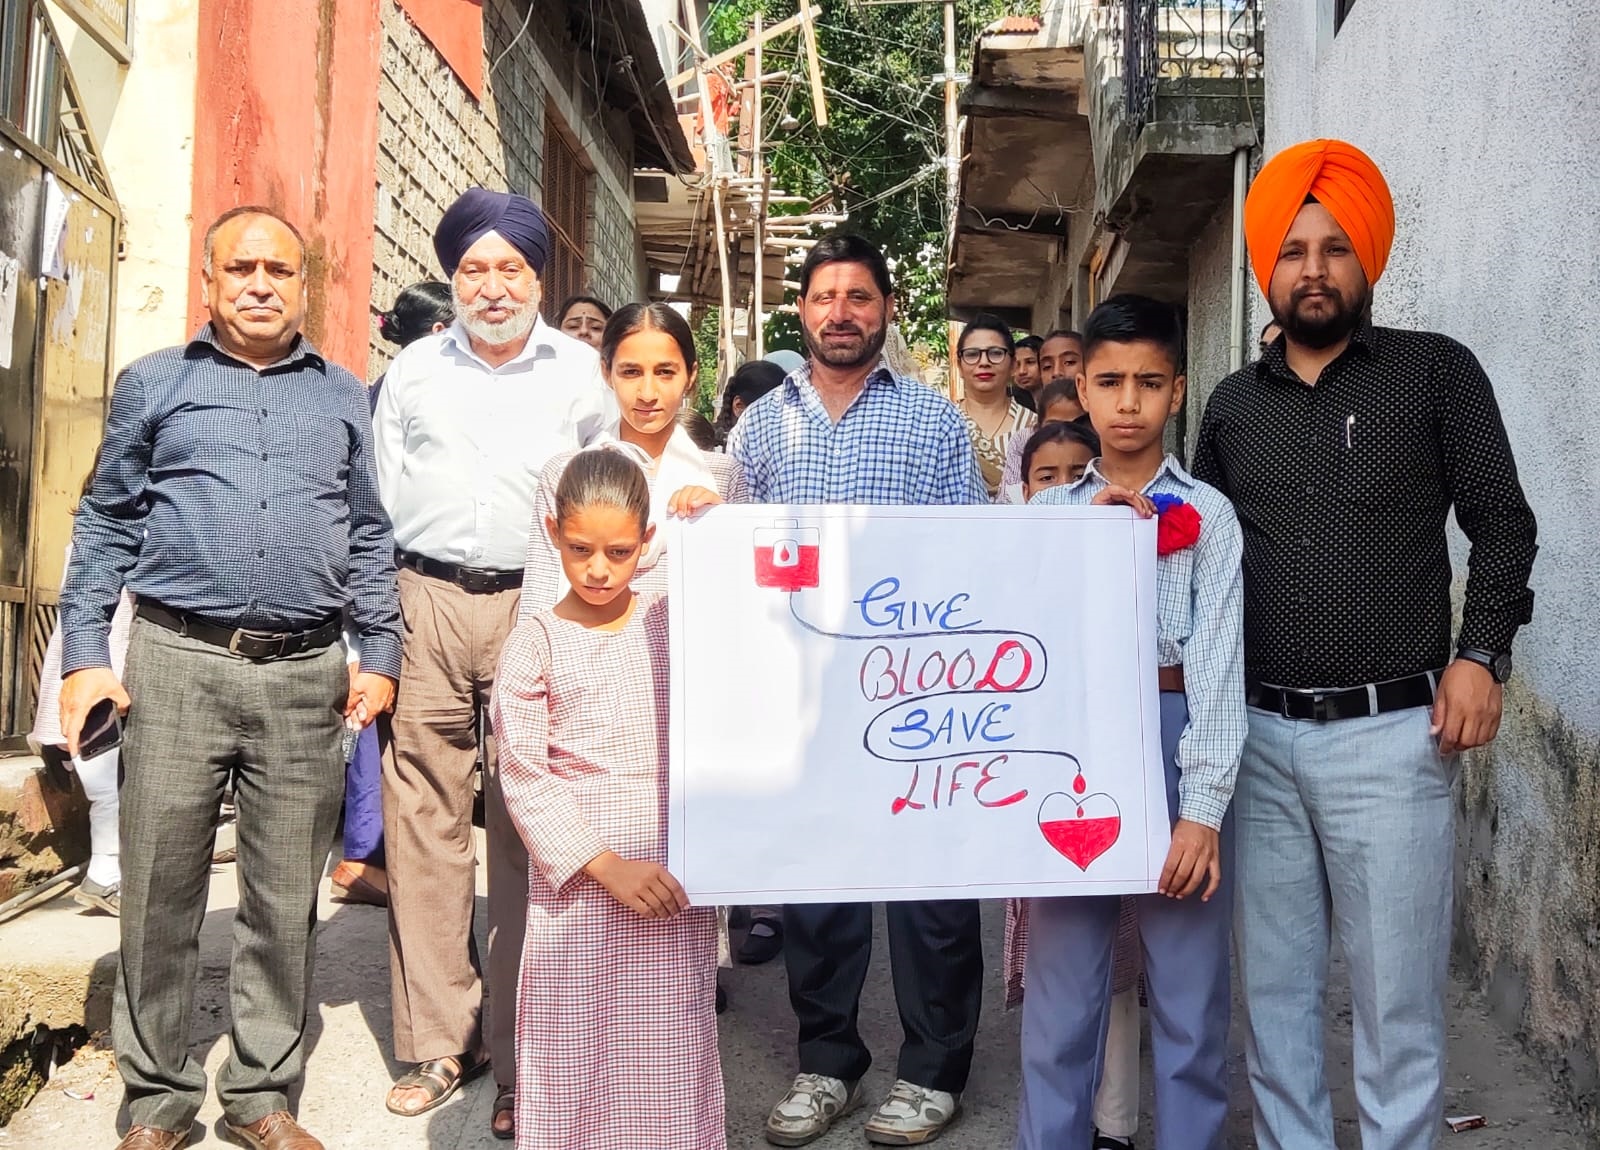 GIVE
BLOOD
SAVE
LIFE